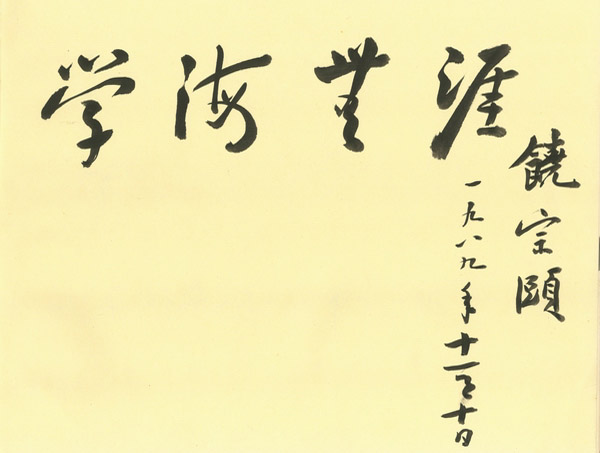 学海無涯
饒宗頤
一九八九年十一月十日